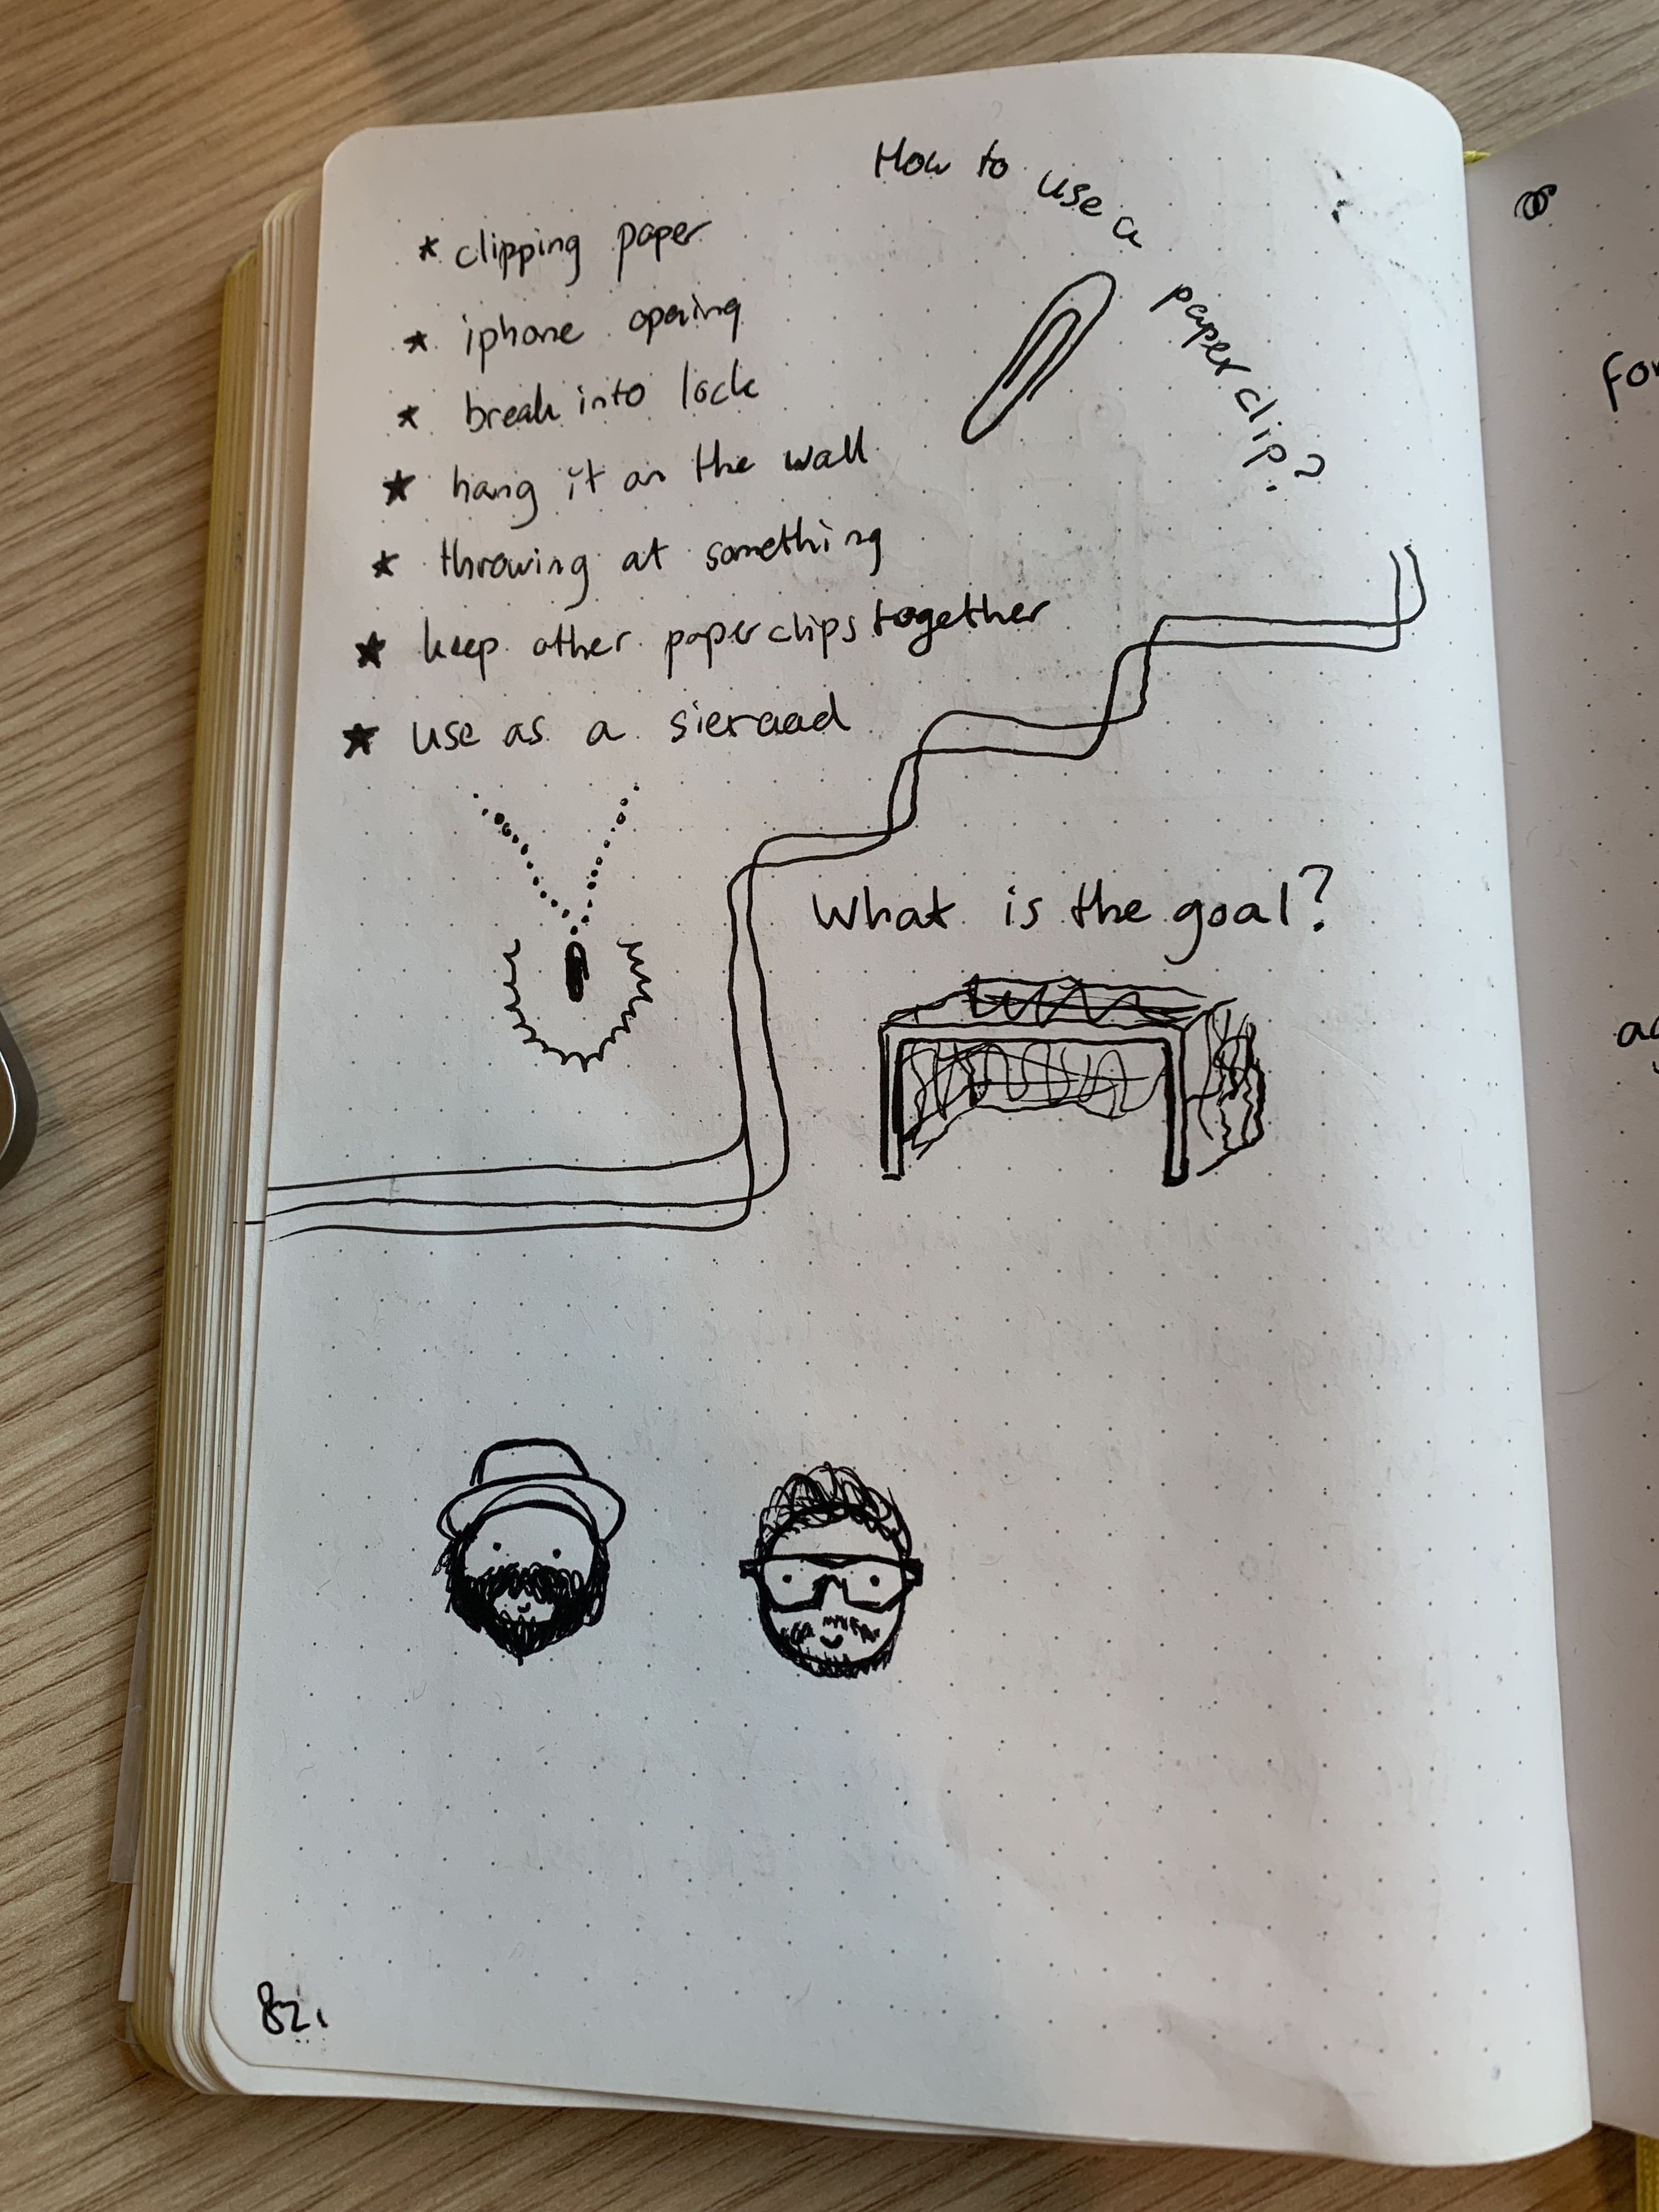 How to use a paperclip?
* clipping paper
* iphone opening
* break into lock
* hang it on the wall
* throwing at something
* keep other paperclips together
* use as a sieraad
What is the goal?
82.